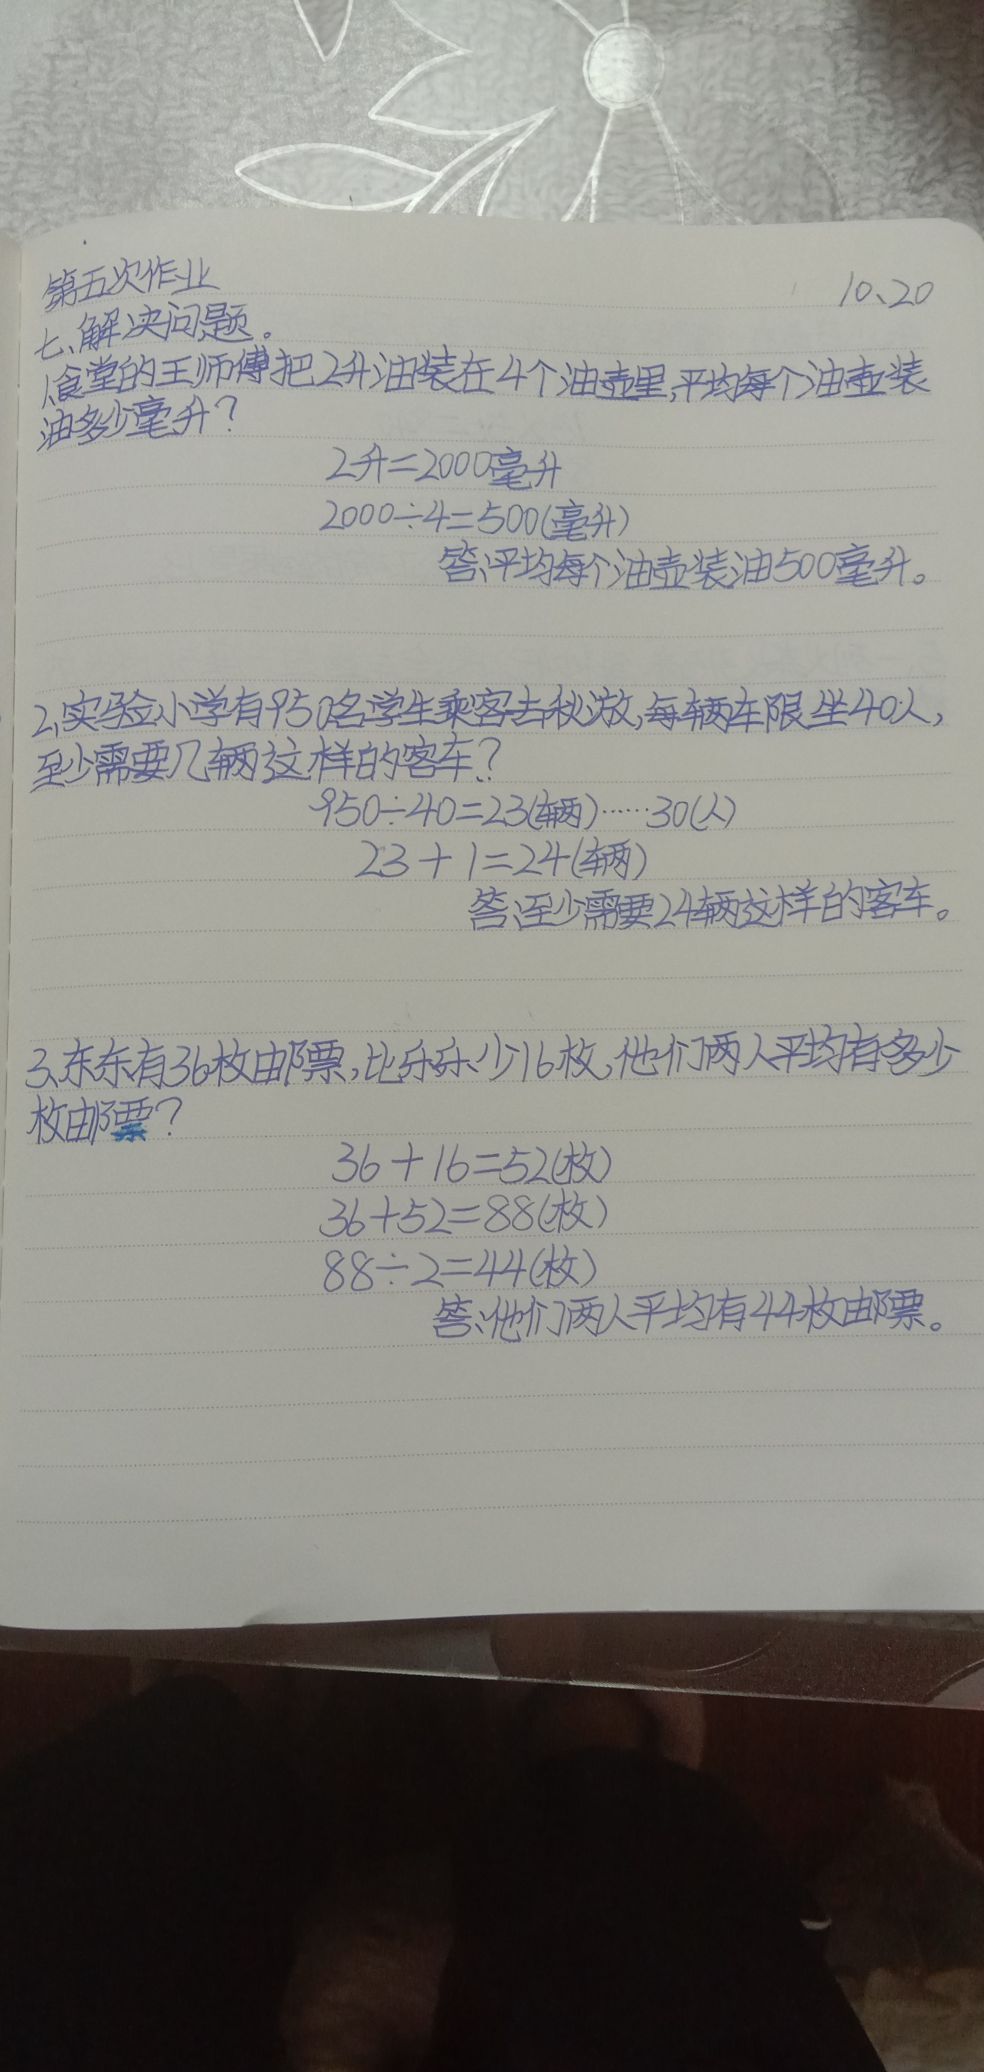 第五次作业
10、20
七、解决问题。
1、食堂的王师傅把2升油装在4个油壶里,平均每个油壶装
油多少毫升?
2升=2000毫升
2000÷4=500(毫升)
答:平均每个油壶装油500毫升。
2、实验小学有950名学生乘客去秋游,每辆车限坐40人,
至少需要几辆这样的客车?
950÷40=23(辆)……30(人)
23+1=24(辆)
答:至少需要24辆这样的客车。
3、东东有36枚邮票,比乐乐少16枚,他们两人平均有多少
枚邮票?
36+16=52(枚)
36+52=88(枚)
88÷2=44(枚)
答:他们两人平均有44枚邮票。